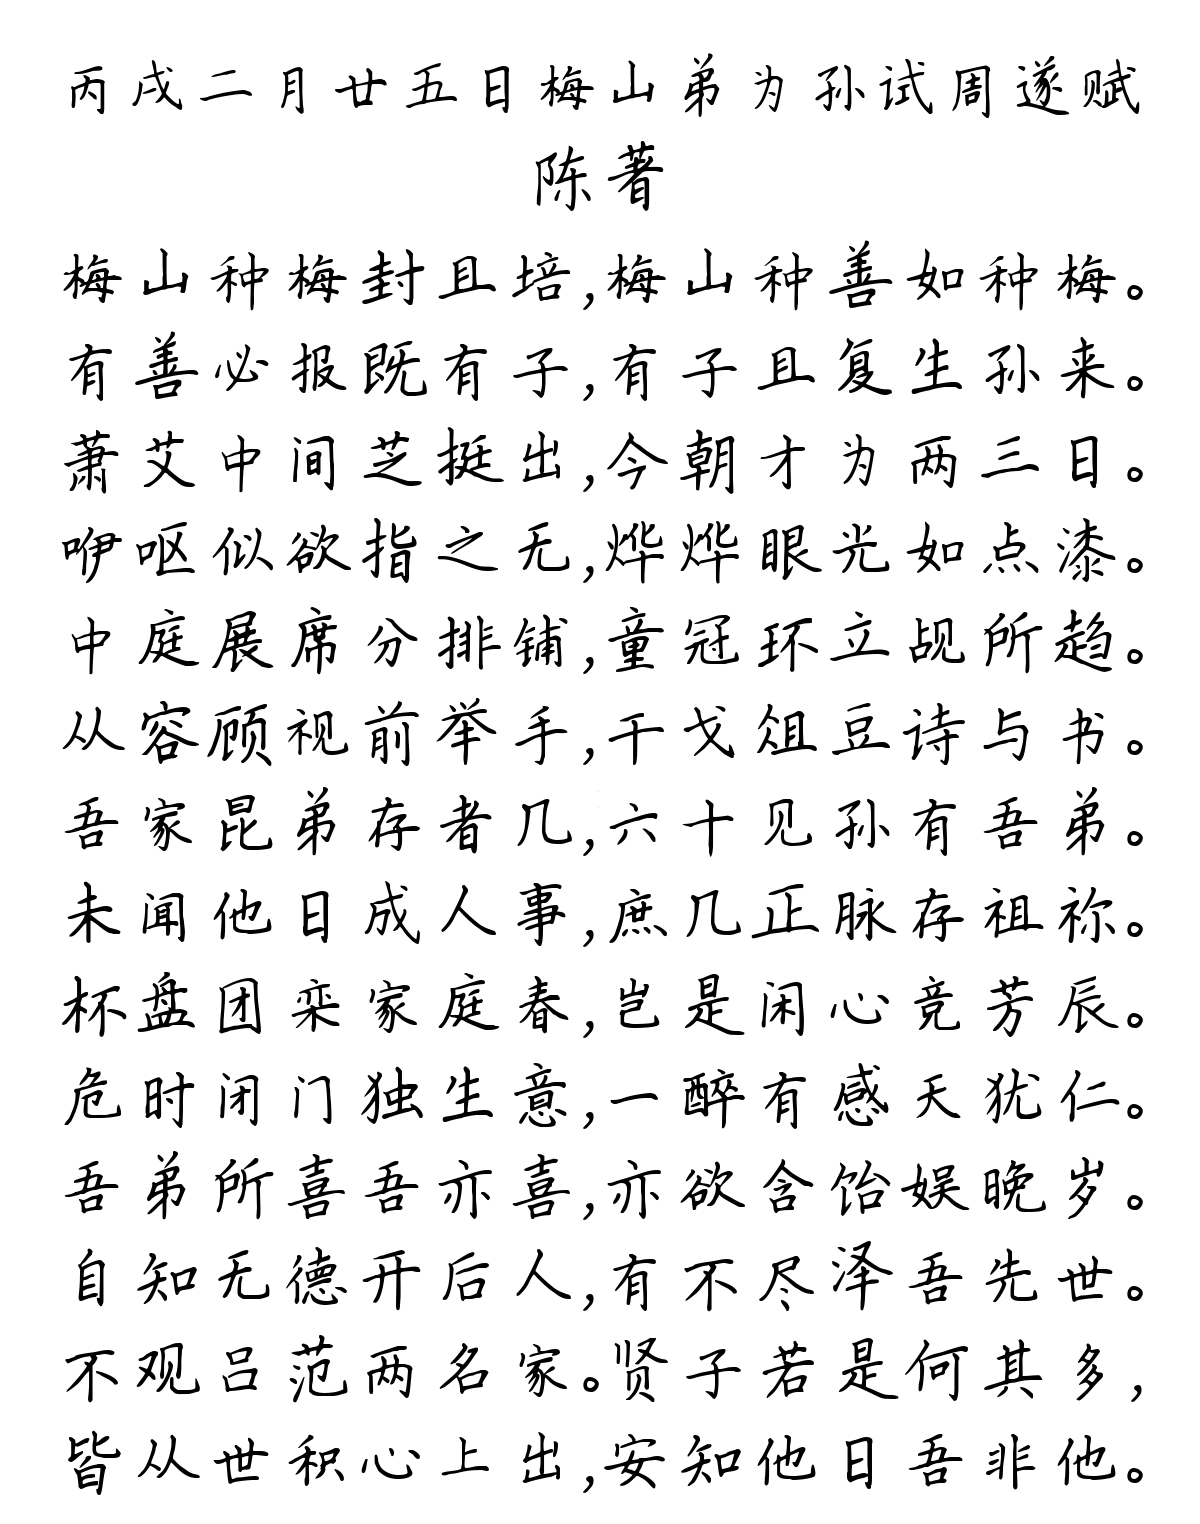 丙戌二月廿五日梅山弟为孙试周遂赋
陈著
梅山种梅封且培,梅山种善如种梅。
有善必报既有子,有子且复生孙来。
萧艾中间芝挺出,今朝才为两三日。
咿呕似欲指之无,烨烨眼光如点漆。
中庭展席分排铺,童冠环立觇所趋。
从容顾视前举手,干戈俎豆诗与书。
吾家昆弟存者几,六十见孙有吾弟。
未闻他日成人事,庶几正脉存祖祢。
杯盘团栾家庭春,岂是闲心竞芳辰。
危时闭门独生意,一醉有感天犹仁。
吾弟所喜吾亦喜,亦欲含饴娱晚岁。
自知无德开后人,有不尽泽吾先世。
不观吕范两名家。贤子若是何其多,
皆从世积心上出,安知他日吾非他。